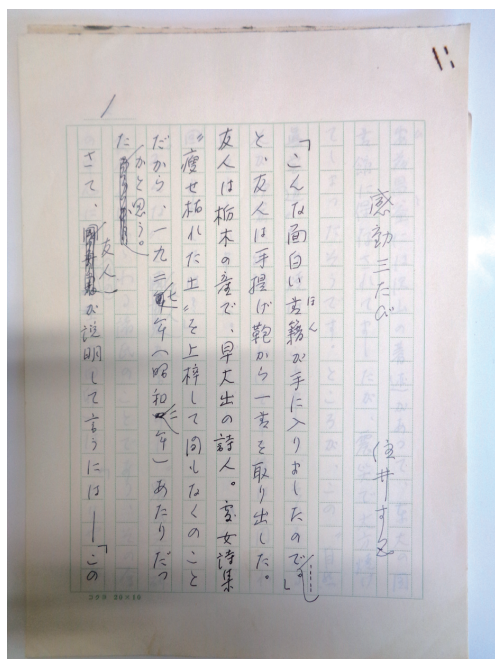 感動三たび
住井すゑ
「こんな面白い書籍が手に入りましたので。」
ほん
と、友人は手提げ鞄から一書を取り出した。
友人は栃木の産で、早大出の詩人。処女詩集
〝瘦せ枯れた土〟を上梓して間もなくのこと
だから、一九二七年(昭和二年)あたりだっ
たかと思う。
さて、友人が説明して言うには―「この
コクヨ 20×10